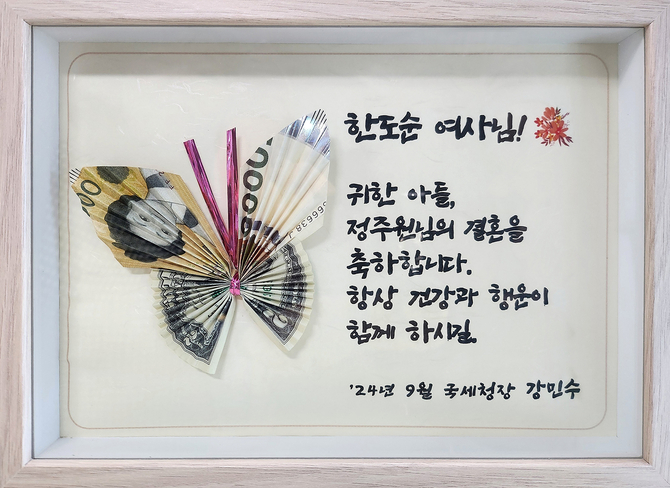 한도순 여사님!
귀한 아들,
정주원님의 결혼을
축하합니다.
항상 건강과 행운이
함께 하시길.
'24년 9월 국세청장 강민수